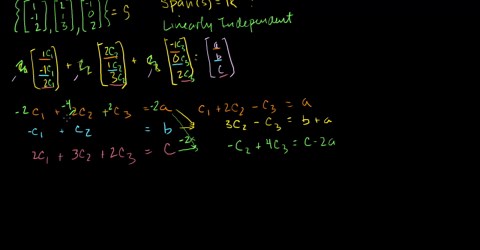 {[1 -1 2], [2 1 3], [-1 0 2]} = S Span(S) = R
Linearly Independent
[1c₁ -1c₁ 2c₁] + [2c₂ 1c₂ 3c₂] + [-1c₃ 0c₃ 2c₃] = [a b c]
-2c₁ + -4c₂ + 2c₃ = -2a c₁ + 2c₂ - c₃ = a
-c₁ + c₂ = b 3c₂ - c₃ = b + a
2c₁ + 3c₂ + 2c₃ = c -c₂ + 4c₃ = c - 2a